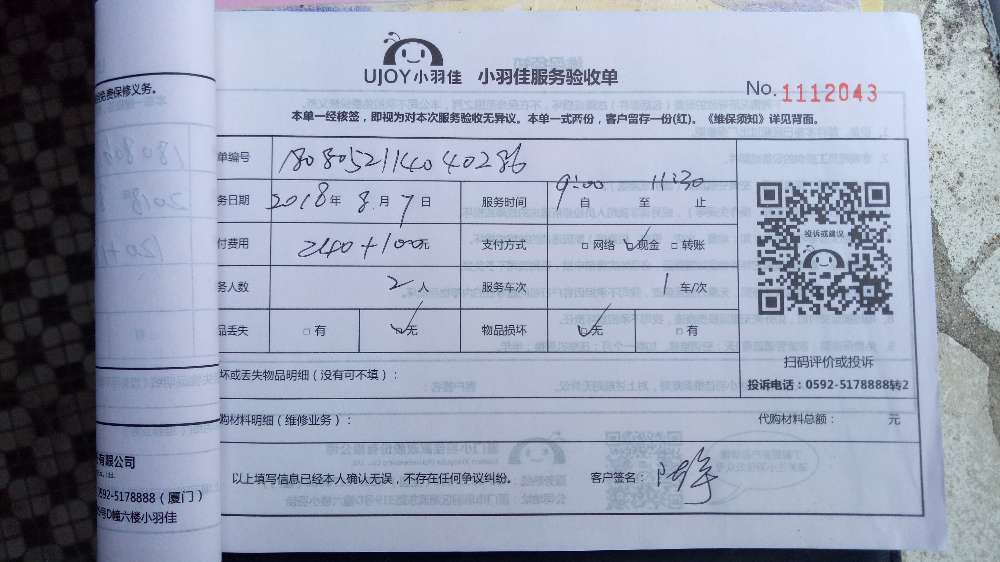 UJOY小羽佳 小羽佳服务验收单
No. 1112043
本单一经核签，即视为对本次服务验收无异议。本单一式两份，客户留存一份(红)。《维保须知》详见背面。
免费保修义务。
单编号 1808052114040286
务日期 2018年 8月 7日 服务时间 9:00自 至 11:30止
付费用 240+100元 支付方式 □网络 ☑现金 □转账
务人数 2人 服务车次 1车/次
品丢失 □有 ☑无 物品损坏 ☑无 □有
投诉或建议
扫码评价或投诉
投诉电话：0592-5178888转2
坏或丢失物品明细（没有可不填）：
购材料明细（维修业务）： 代购材料总额： 元
以上填写信息已经本人确认无误，不存在任何争议纠纷。 客户签名：
有限公司
0592-5178888（厦门）
号D幢六楼小羽佳